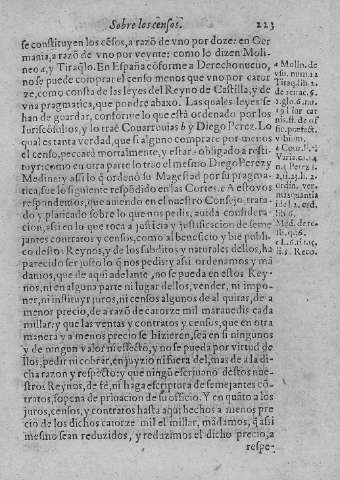 Sobre los censos. 223
se constituyen los cẽsos, a razõ de vno por doze: en Ger
mania, a razõ de vno por veynte: como lo dizen Moli-
neo a, y Tiraq̃lo. En España cõforme a Derecho nueuo,
no se puede comprar el censo menos que vno por cator
ze, como cõsta de las leyes del Reyno de Castilla, y de
vna pragmatica, que pondre abaxo. Las quales leyes se
han de guardar, conforme lo que està ordenado por los
Iurisc̃ôsultos, y lo traẽ Couarruuias b y Diego Perez. Lo
qual es tanta verdad, que si alguno comprare por menos
el censo, peccarà mortalmente, y estarà obligado a resti-
tuyr: como en otra parte lo trae el mismo Diego Perez y
Medina: y assi lo q̃ ordenò su Magestad por su pragma-
tica, fue lo siguiente respõdido en las Cortes. c A esto vos
respondemos, que auiendo en el nuestro Consejo, trata-
do, y platicado sobre lo que nos pedis, auida considera-
cion, assi en lo que toca a justicia y justificacion de seme
jantes contratos y censos, como al beneficio y biẽ publi-
co destos Reynos, y de los subditos y naturales dellos, ha
parecido ser justo lo q̃ nos pedis: y assi ordenamos y mã
damos, que de aqui adelante, no se pueda en estos Rey-
nos, ni en alguna parte ni lugar dellos, vender, ni impo-
ner, ni instituyr juros, ni censos algunos de al quitar, de a
menor precio, de a razõ de catorze mil marauedis cada
millar: y que las ventas y contratos y censos, que en otra
manera y a menos precio se hizieren, sea en si ningunos
y de ningun valor ni effecto, y no se pueda por virtud de
llos, pedir ni cobrar, en juyzio ni fuera del, mas de a la di-
cha razon y respecto: y que ningũ escriuano destos nue-
stros Reynos, de fè, ni haga escriptura de semejantes cõ-
tratos, so pena de priuacion de su officio. Y en quãto a los
juros, censos, y contratos hasta aqui hechos a menos pre
cio de los dichos catorze mil el millar, mãdamos, q̃ assi
mesmo sean reduzidos, y reduzimos el dicho precio, a
respe-
a Molin. de
Tiraq. lib. 2